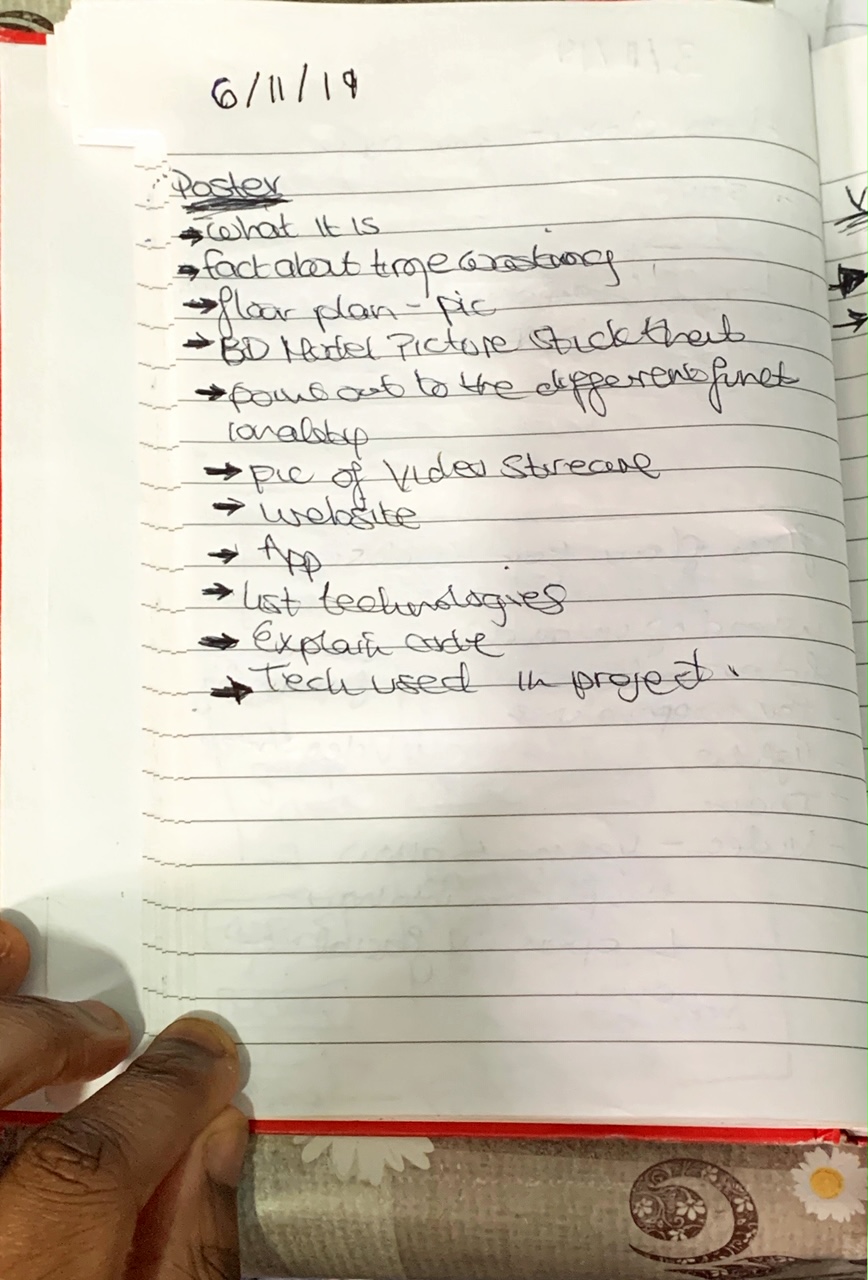 6/11/19
Poster
→ what it is
→ fact about
→ floor plan - pic
→ 3D Model Picture stick that
→ point out to the different funct
ionality
→ pic of Video
→ website
→ App
→ list technologies
→ Explain code
→ Tech used in project.